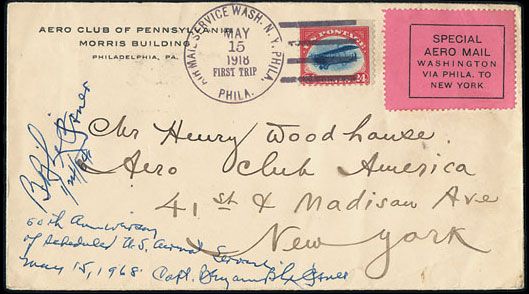 AERO CLUB OF PENNSYLVANIA
MORRIS BUILDING
PHILADELPHIA, PA.
AIR MAIL SERVICE WASH. N.Y. PHILA.
MAY
15
1918
FIRST TRIP
PHILA.
U.S. POSTAGE
24
SPECIAL
AERO MAIL
WASHINGTON
VIA PHILA. TO
NEW YORK
Mr Henry Woodhouse
Aero Club America
41st & Madison Ave
New York
50th Anniversary
of scheduled U.S. Aerial Service
May 15, 1968. Capt.